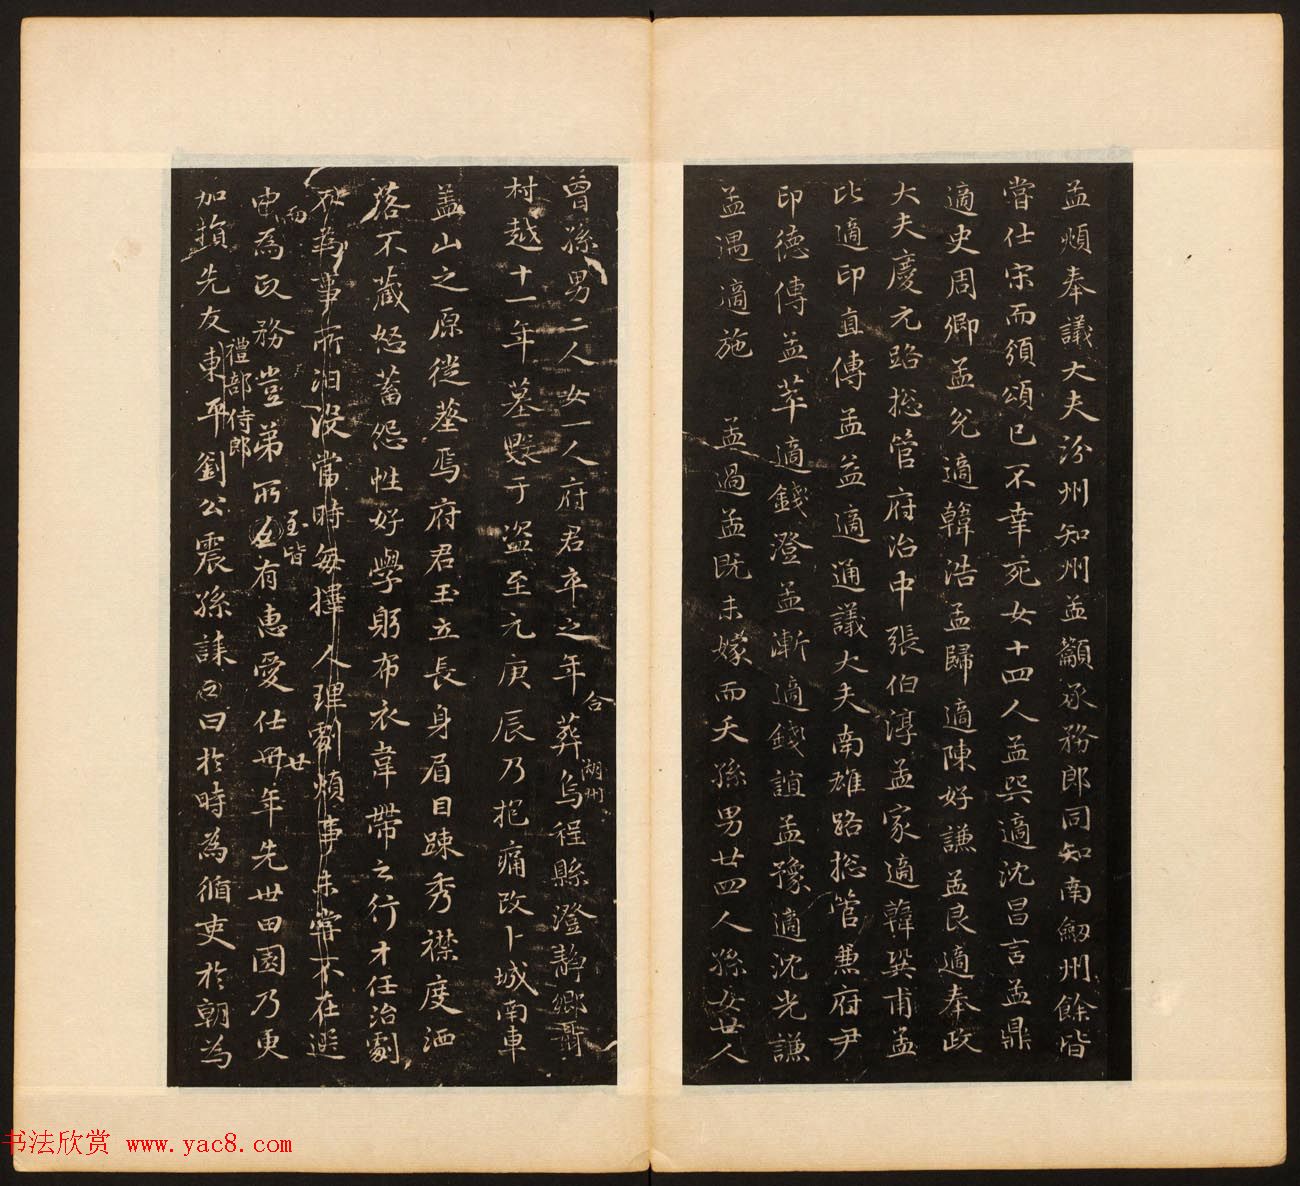 孟頫奉議大夫汾州知州孟籲承務郎同知南劒州餘皆
嘗仕宋而須頌已不幸死女十四人孟巽適沈昌言孟鼎
適史周卿孟兊適韓浩孟歸適陳好謙孟艮適奉政
大夫慶元路揔管府治中張伯淳孟家適韓巽甫孟
比適印直傳孟益適通議大夫南雄路揔管兼府尹
印德傳孟萃適錢澄孟漸適錢誼孟豫適沈光謙
孟遇適施 孟過孟既未嫁而夭孫男廿四人孫女廿人
曾孫男二人女一人府君卒之年 葬烏程縣澄靜鄉聶
合
湖州
村越十一年墓毀于盜至元庚辰乃抱痛改卜城南車
盖山之原從塟焉府君玉立長身眉目踈秀襟度洒
落不藏怒蓄怨性好學躬布衣韋帶之行才任治劇
不為事所汩沒當時每擇人理劇煩事未嘗不在選
而
至皆
中為政務豈弟所 有惠愛仕卌年先世田園乃更
廿
禮部侍郎
加損先友東平劉公震孫誄 曰於時為循吏於朝為
书法欣赏 www.yac8.com